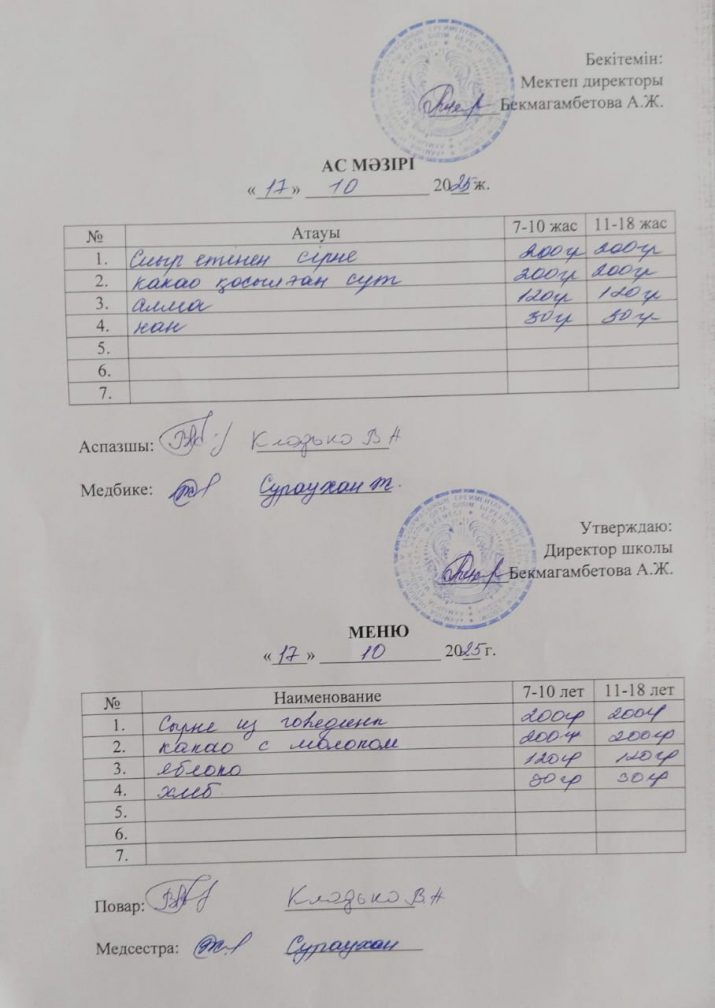 Бекітемін:
Мектеп директоры
Бекмагамбетова А.Ж.
АС МӘЗІРІ
«17» 10 2025 ж.
№ Атауы 7-10 жас 11-18 жас
1. Сиыр етінен сірне 200гр 200гр
2. какао қосылған сүт 200гр 200гр
3. алма 120гр 120гр
4. нан 30гр 30гр
5.
6.
7.
Аспазшы: Кладько В А
Медбике: Сураухан Т.
Утверждаю:
Директор школы
Бекмагамбетова А.Ж.
МЕНЮ
«17» 10 2025 г.
№ Наименование 7-10 лет 11-18 лет
1. Сырне из говедины 200гр 200гр
2. какао с молоком 200гр 200гр
3. яблоко 120гр 120гр
4. хлеб 30гр 30гр
5.
6.
7.
Повар: Кладько В.А
Медсестра: Сураухан